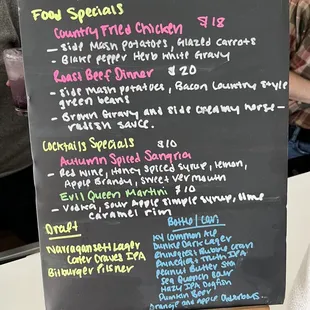 Food Specials
Country Fried Chicken $18
- Side Mash Potatoes, Glazed Carrots
- Blake pepper Herb White Gravy
Roast Beef Dinner $20
- Side Mash potatoes, Bacon Country Style
green beans
- Brown Gravy and side creamy horse-
radish sauce.
Cocktails Specials $10
Autumn Spiced Sangria
- Red wine, Honey Spiced Syrup, lemon,
Apple Brandy, Sweet Vermouth
Evil Queen Martini $10
- Vodka, Sour Apple Simple Syrup, lime
caramel rim
Draft
Narragansett Lager
Cater Craves IPA
Bitburger Pilsner
Bottle/Can
KY Common Ale
Dunkle Dark Lager
IPA
Peanut Butter
Sea Quench Sour
Hazy IPA Dogfish
Beer
Orange and Apple